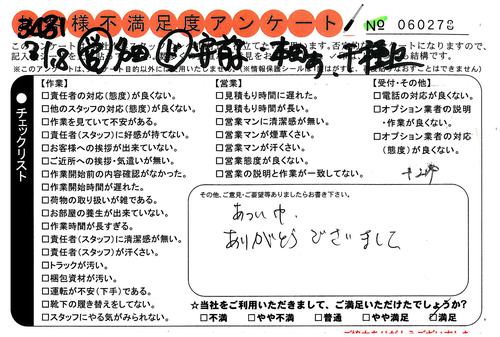 お客様不満足度アンケート
№ 060278
チェックリスト
【作業】
□責任者の対応(態度)が良くない。
□他のスタッフの対応(態度)が良くない。
□作業を見ていて不安がある。
□責任者(スタッフ)に好感が持てない。
□お客様への挨拶が出来ていない。
□ご近所への挨拶・気遣いが無い。
□作業開始前の内容確認がなかった。
□作業開始時間が遅れた。
□荷物の取り扱いが雑である。
□お部屋の養生が出来ていない。
□作業時間が長すぎる。
□責任者(スタッフ)に清潔感が無い。
□責任者(スタッフ)が汗くさい。
□トラックが汚い。
□梱包資材が汚い。
□運転が不安(下手)である。
□靴下の履き替えをしてない。
□スタッフにやる気がみられない。
【営業】
□見積もり時間に遅れた。
□見積もり時間が長い。
□営業マンに清潔感が無い。
□営業マンが煙草くさい。
□営業マンが汗くさい。
□営業態度が良くない。
□営業の説明と作業が一致してない。
【受付・その他】
□電話の対応が良くない。
□オプション業者の説明
・作業が良くない。
□オプション業者の対応
(態度)が良くない。
その他、ご意見・ご要望等ありましたらお書き下さい。
あつい中、
ありがとうございまして
☆当社をご利用いただきまして、ご満足いただけたでしょうか?
□不満 □やや不満 □普通 □やや満足 □満足